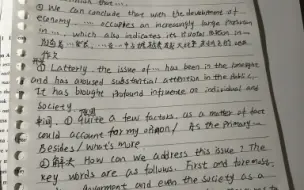 ① We can conclude that with the development of
economy, ... occupies an increasingly large proportion
in ..., which also indicates its pivotal position in
② Latterly, the issue of ... has been in the limelight
and has aroused substantial attention in the public.
It has brought profound influence on individual and
society.
① Quite a few factors, as a matter of fact
could account for my opinion / As the Primary
Besides / What's more
② 解决 How can we address this issue? The
key words are as follows. First and foremost,
government and even the society as a